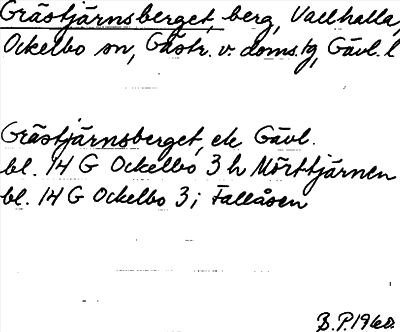 Grästjärnsberget, berg, Vallhalla,
Ockelbo sn, Gästr. v. doms.tg, Gävl. l
Grästjärnsberget, ek Gävl.
bl. 14 G Ockelbo 3 h Mörttjärnen
bl. 14 G Ockelbo 3 i Fallåsen
B.P. 1960.